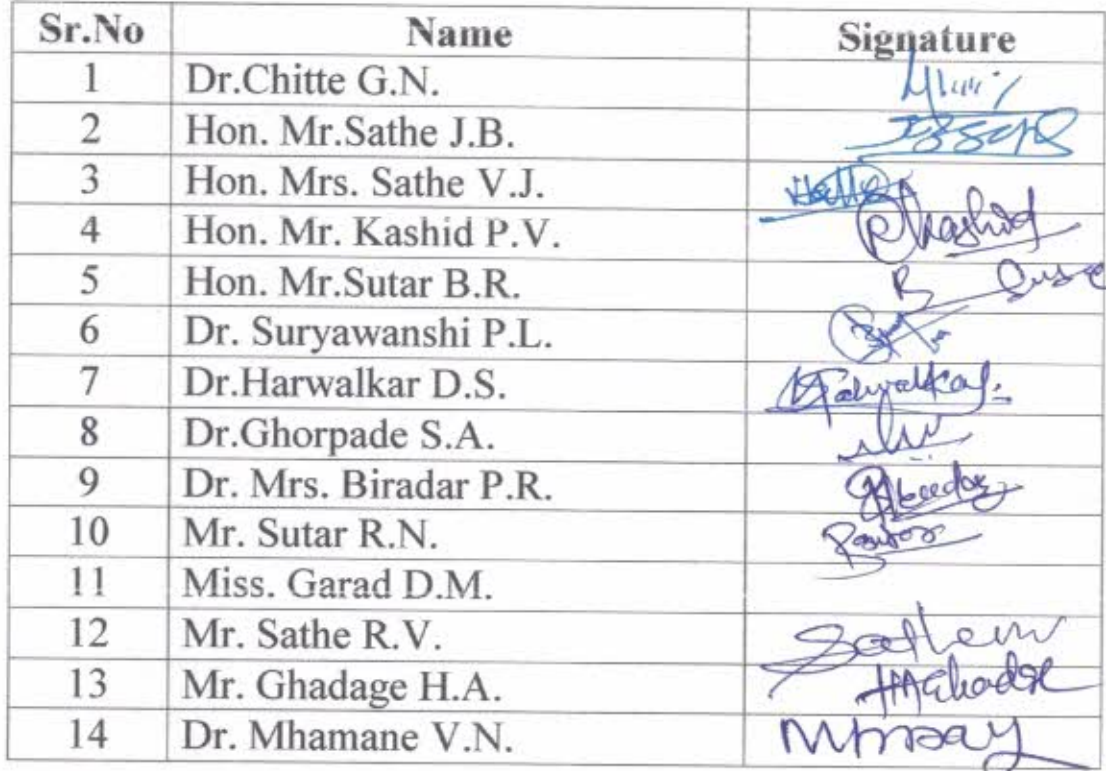 Sr.No Name Signature
1 Dr.Chitte G.N.
2 Hon. Mr.Sathe J.B.
3 Hon. Mrs. Sathe V.J.
4 Hon. Mr. Kashid P.V. PKashid
5 Hon. Mr.Sutar B.R.
6 Dr. Suryawanshi P.L.
7 Dr.Harwalkar D.S.
8 Dr.Ghorpade S.A.
9 Dr. Mrs. Biradar P.R.
10 Mr. Sutar R.N.
11 Miss. Garad D.M.
12 Mr. Sathe R.V.
13 Mr. Ghadage H.A. HAGhadge
14 Dr. Mhamane V.N.